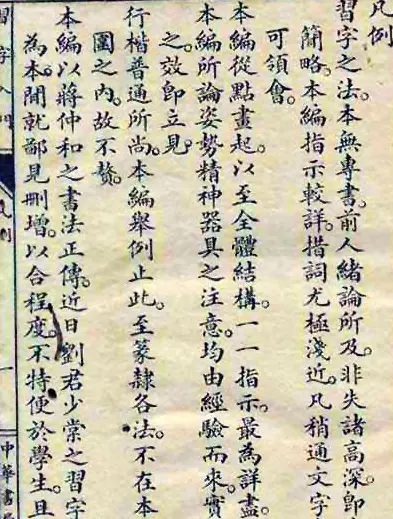 凡例
習字之法。本無專書。前人緒論所及。非失諸高深。卽
簡略。本編指示較詳。措詞尤極淺近。凡稍通文字
可領會。
本編從點畫起。以至全體結構。一一指示。最為詳盡。
本編所論姿勢精神器具之注意。均由經驗而來。實
之。效卽立見。
行楷普通所尚。本編舉例止此。至篆隸各法。不在本
圍之內。故不贅。
本編以蔣仲和之書法正傳。近日劉君少棠之習字
為本。間就鄙見刪增。以合程度。不特便於學生。且
習字入門
凡例
一
中華書局